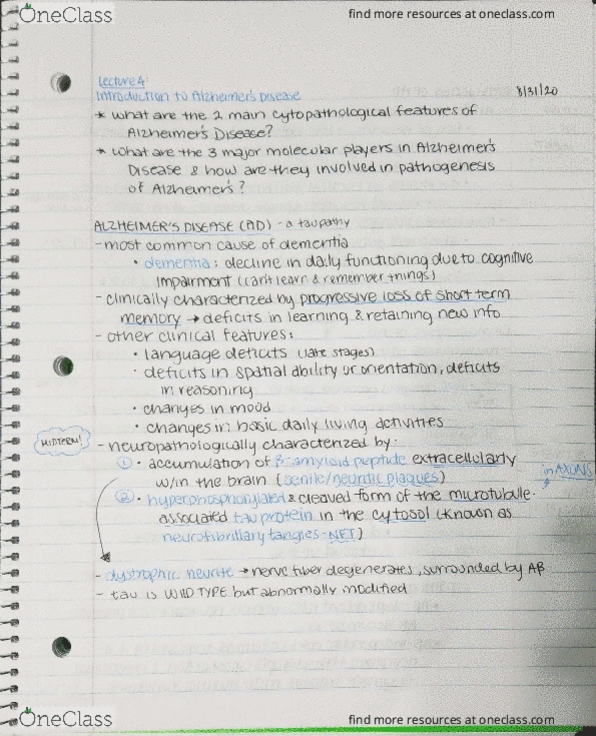 OneClass
find more resources at oneclass.com
Lecture 4:
Introduction to Alzheimer's Disease
8/31/20
* What are the 2 main cytopathological features of
Alzheimer's Disease?
* What are the 3 major molecular players in Alzheimer's
Disease & how are they involved in pathogenesis
of Alzheimer's?
ALZHEIMER'S DISEASE (AD) - a taupathy
- most common cause of dementia
• dementia: decline in daily functioning due to cognitive
impairment (can't learn & remember things)
- clinically characterized by progressive loss of short term
memory → deficits in learning & retaining new info
- other clinical features:
• language deficits (late stages)
• deficits in spatial ability or orientation, deficits
in reasoning
• changes in mood
• changes in basic daily living activities
MIDTERM!
- neuropathologically characterized by:
① • accumulation of β-amyloid peptide extracellularly
w/in the brain (senile/neuritic plaques)
in AXONS
② • hyperphosphorylated & cleaved form of the microtubule-
associated tau protein in the cytosol (known as
neurofibrillary tangles - NFT)
- dystrophic neurite → nerve fiber degenerates, surrounded by Aβ
- tau is WILD TYPE but abnormally modified
OneClass
find more resources at oneclass.com